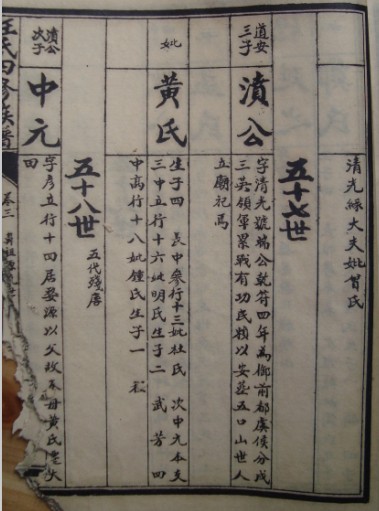 清光綠大夫妣曾氏
五十七世
道安
三子
濆公
字清光號端公乾符四年為御前都虞侯分戍
三吳領軍累戰有功民賴以安葬五口山世人
立廟祀焉
妣
黃氏
生子四 長中參行十三妣杜氏 次中元本支
三中立行十六妣明氏生子二 武 芳 四
中高行十八妣鍾氏生子一
五十八世
五代殘唐
濆公
次子
中元
字彥立行十四居婺源以父故奉母黃氏
回
汪氏四修族譜
卷三